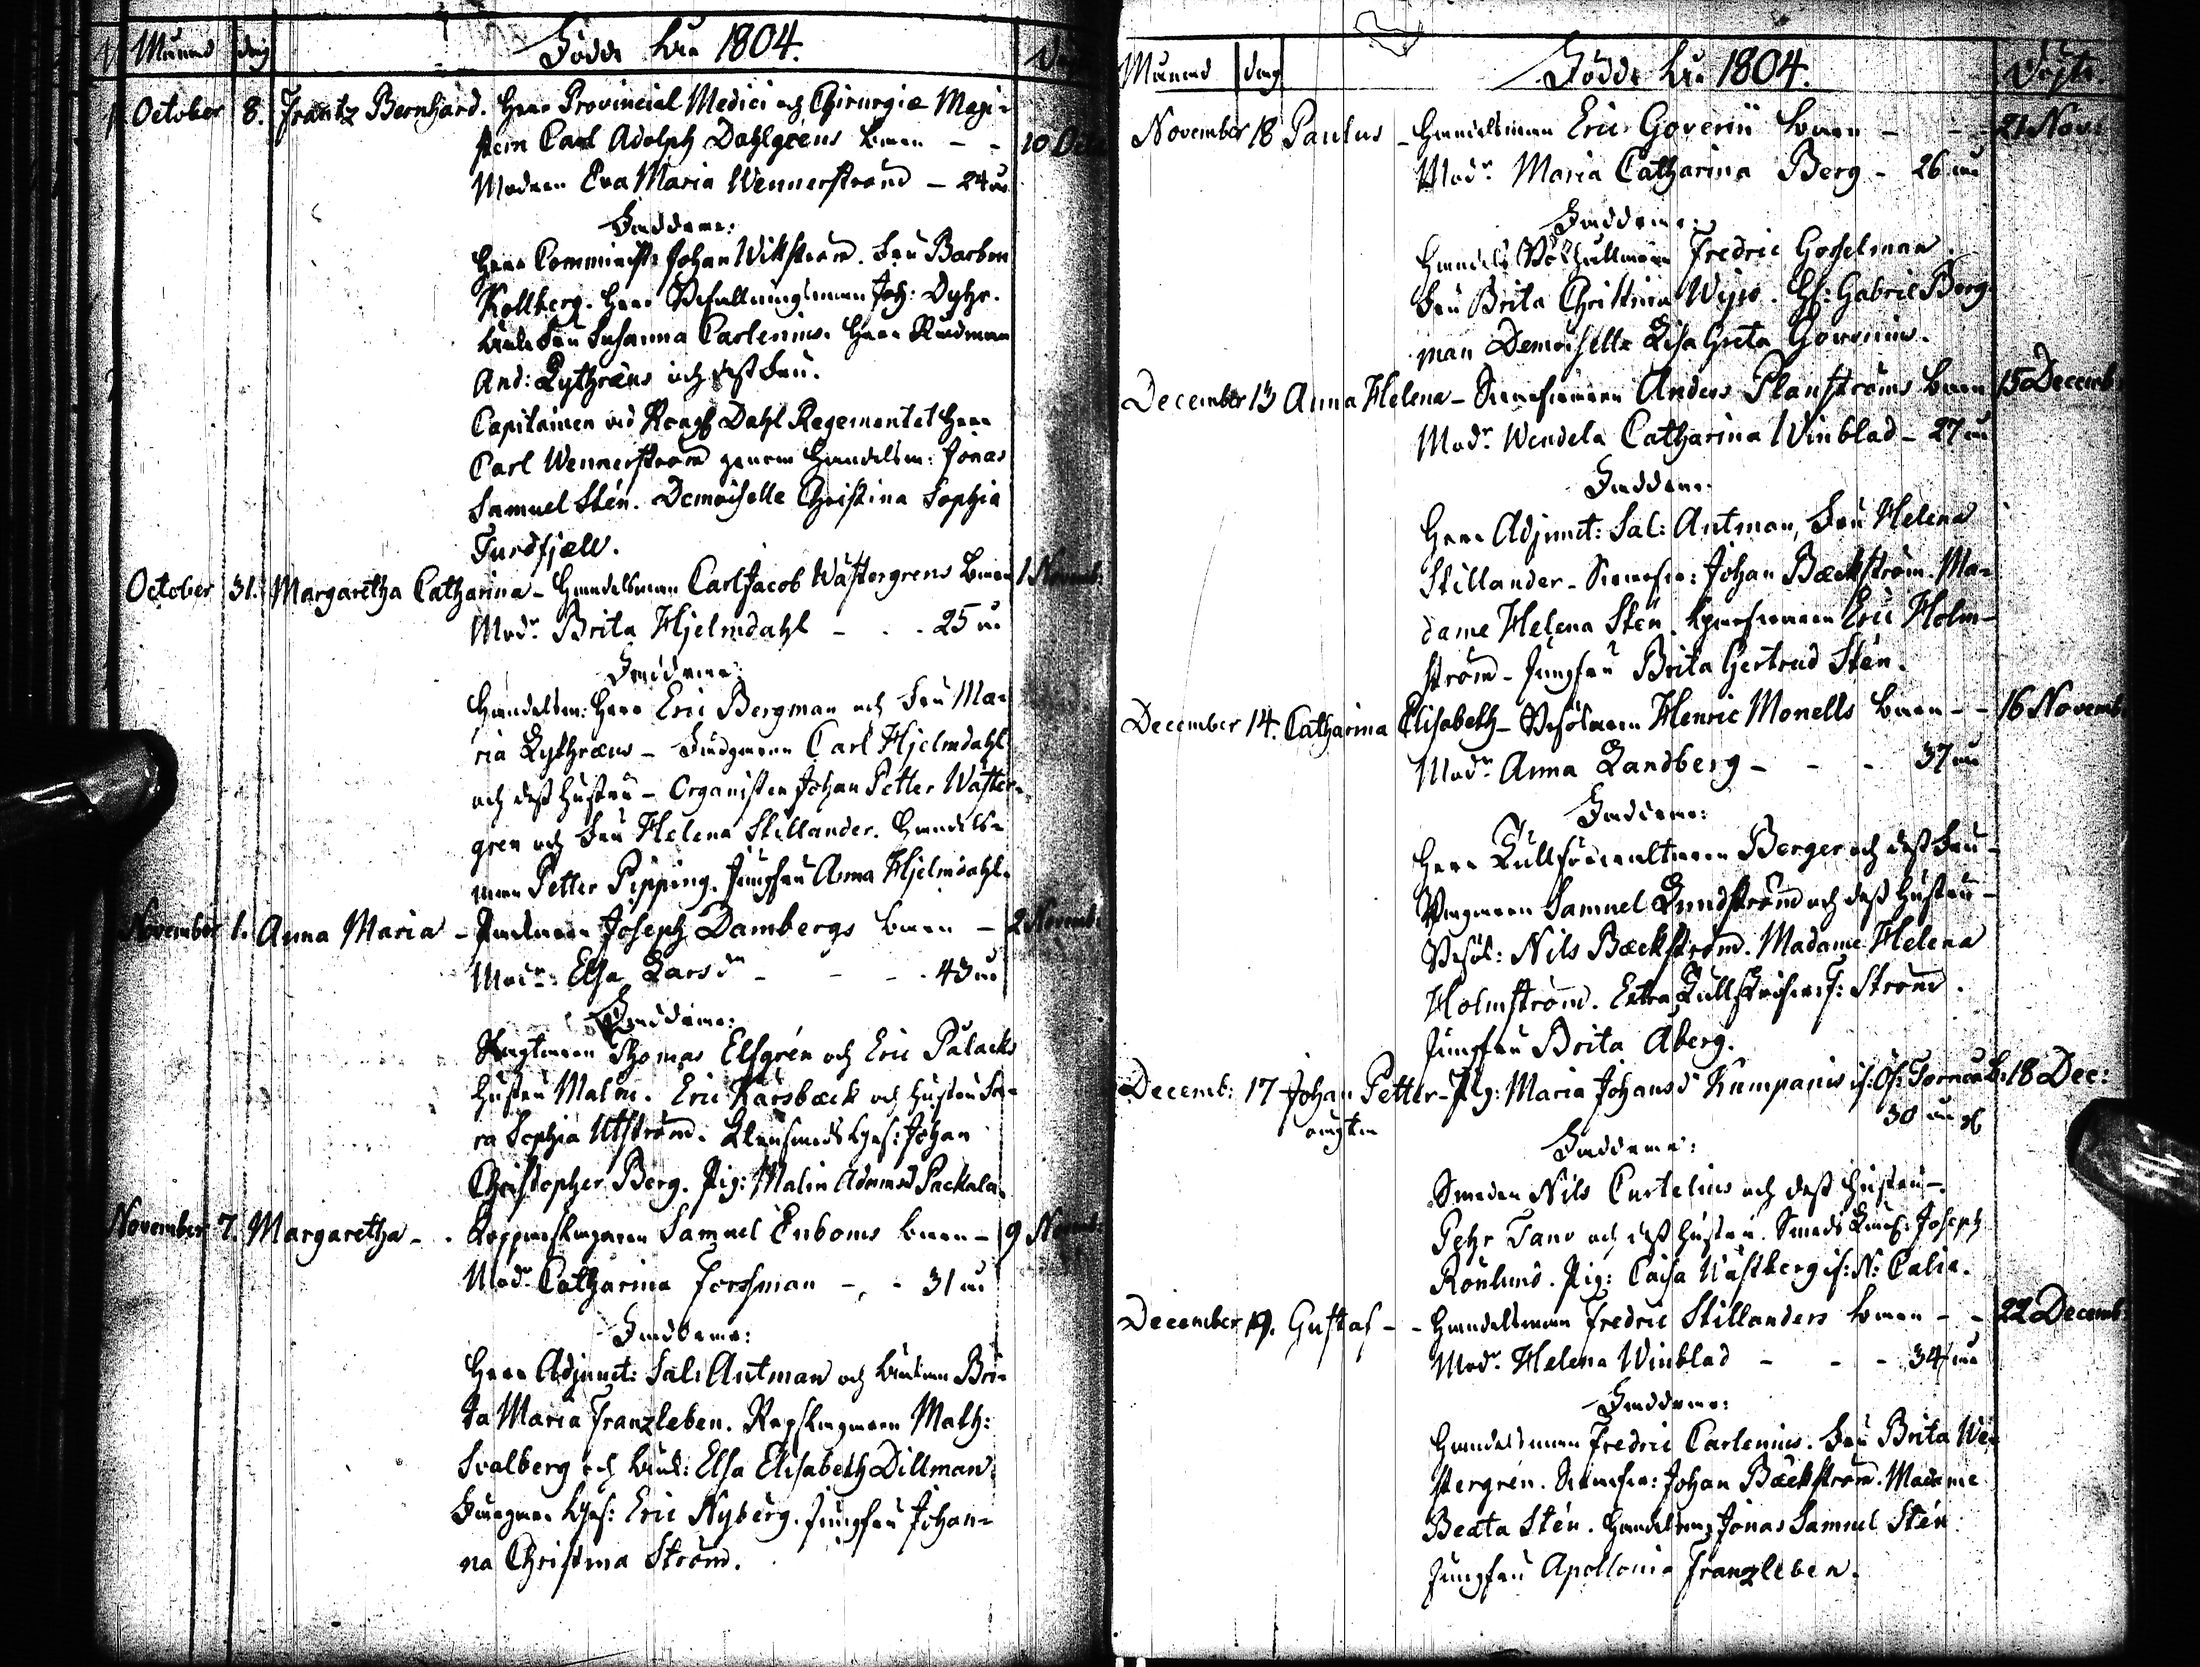 Månad dag Födde År 1804.
October 8. Frantz Bernhard. Herr Provincial Medici och Chirurgiæ Magi-
stern Carl Adolph Dahlgréns barn - - 10 Oct
Modren Eva Maria Wennerström - 24 år
Faddrar:
Herr Comminister Johan Wittström. Fru Barbru
Kollberg. Herr Befallningsman Joh: Dyhr.
Enkefru Susanna Carlenius. Herr Rådman
And: Lythræus och dess Fru.
Capitainen vid Kongl Dahl Regementet Herr
Carl Wennerström genom Handelsm: Jonas
Samuel Stén. Demoiselle Christina Sophia
Turdfjæll.
October 31. Margaretha Catharina - Handelsman Carl Jacob Wästergrens barn 1 Novemb:
Modr. Brita Hjelmdahl - - - 25 år
Faddrar:
Handelsm: Herr Eric Bergman och Fru Ma-
ria Lythræus - Carl Hjelmdahl
och dess Hustru - Organisten Johan Petter Wäster-
gren och Fru Helena Stillander. Handels-
man Petter Pipping. Jungfru Anna Hjelmdahl.
November 1. Anna Maria - Joseph Dambergs barn - 2 Novemb.
Modr: Elsa Larsdr - - - 43 år
Faddrar:
Thomas Elfgrén och Eric Palacks
Hustru Malin. Eric Karsbæck och Hustru Sa-
ra Sophia Utström. Gesf: Johan
Christopher Berg. Pig: Malin Adamsd Packala.
November 7. Margaretha - - Kopparslagaren Samuel Enboms barn - 9 Novemb.
Modr Catharina Forssman - - - 31 år
Faddrar:
Herr Adjunct: Sal: Autman och Enkan Bri-
ta Maria Franzleben. Repslagaren Math:
Svalberg och Elsa Elisabeth Dillman.
Gesf: Eric Nyberg. Jungfru Johan-
na Christina Ström.
Månad dag Födde År 1804. Döpte.
November 18 Paulus - Handelsman Eric Goverii barn - - - 21 Nov:
Modr. Maria Catharina Berg - 26 år
Faddrar:
Handels Fredric Gosselman.
Fru Brita Christina Wijss. Gabriel Berg-
man Demoiselle Lisa Greta Goverius.
December 13 Anna Helena - Anders Planströms barn 15 Decemb
Modr. Wendela Catharina Winblad - 27 år
Faddrar.
Herr Adjunct: Sal: Autman, Fru Helena
Stillander - Johan Bæckström. Ma-
dame Helena Stén. Eric Holm-
ström - Jungfru Brita Gertrud Stén.
December 14. Catharina Elisabeth - Henric Monells barn - - 16 Novemb
Modr. Anna Landberg - - - 37 år
Faddrar:
Herr Tullförvaltaren Berger och dess Fru -
Samuel Lundström och dess Hustru -
Nils Bæckström. Madame Helena
Holmström. Extra Ström.
Jungfru Brita Åberg.
Decemb: 17 Johan Petter - Pig: Maria Johansd Kumpanis 18 Dec:
oägta 30 år
Faddrar:
Smeden Nils Curtelius och dess Hustru -
Pehr Tano och dess Hustru. Smeds Joseph
Rönlund. Pig: Caisa Wästberg N: Calix.
December 19. Gustaf - - Handelsman Fredric Stillanders barn - - 22 Decemb
Modr. Helena Winblad - - - 34 år
Faddrar:
Handelsman Fredric Carlenius. Fru Brita We-
stergrén. Johan Bäckström. Madame
Beata Stén. Handelsm: Jonas Samuel Stén.
Jungfru Apollonia Franzleben.